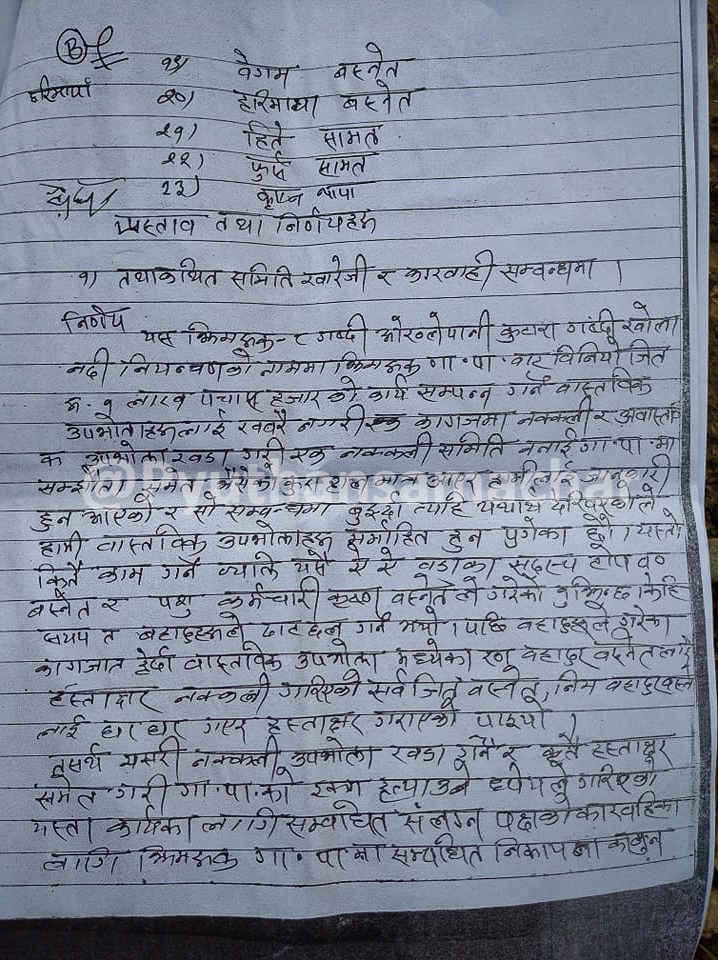 B
१९) वेगम बस्नेत
हरिमाया २०) हरिमाया बस्नेत
२१) हिते सामत
२२) फुर्प सामत
२३) कृष्ण थापा
प्रस्ताव तथा निर्णयहरू
१) तथाकथित समिति खारेजी र कारवाही सम्वन्धमा ।
निर्णय यस झिमरूक-८ गाब्दी ओखलेपानी कुटारा गाब्दी खोला
नदी नियन्त्रणको नाममा झिमरूक गा॰पा॰ वाट विनियोजित
रू. १ लाख पचास हजार को कार्य सम्पन्न गर्न वास्तविक
उपभोक्ताहरूलाई खवरै नगरी कागजमा नक्कली र अवास्तवि
क उपभोक्ता खडा गरी एक नक्कली समिति वनाई गा॰पा॰मा
सम्झौता समेत भएको कुरा हाल मात्र आएर हामीलाई जानकारी
हुन आएको र सो सम्वन्धमा बुझ्दा त्याहि यथार्थ
हामी वास्तविक उपभोक्ताहरू मर्माहित हुन पुगेका छौं । यस्तो
किर्ते काम गर्ने व्याक्ति यसै वडाका सदस्य
बस्नेत र पशु कर्मचारी कृष्ण वस्नेतले गरेको बुझिन्छ केहि
समय त वहाहरूले ढाटछल गर्नु भयो । पछि वहाहरूले गरेका
कागजात हेर्दा वास्तविक उपभोक्ता मध्येका रनु बहादुर बस्नेतलाई
हस्ताक्षर नक्कली गरिएको सर्वजित वस्नेत, निम वहादुर वस्नेत
लाई घर घर गएर हस्ताक्षर गराएको पाइयो ।
तसर्थ यसरी नक्कली उपभोक्ता खडा गर्ने र हस्ताक्षर
समेत गरी गा॰पा॰को रकम हत्याउने ध्येयले गरिएको
यस्ता कार्यका लागि सम्वन्धित संलग्न पक्षको कारवाहिका
लागि झिमरूक गा॰पा॰का सम्वन्धित निकायमा कानुन
@Pyuthansamachar